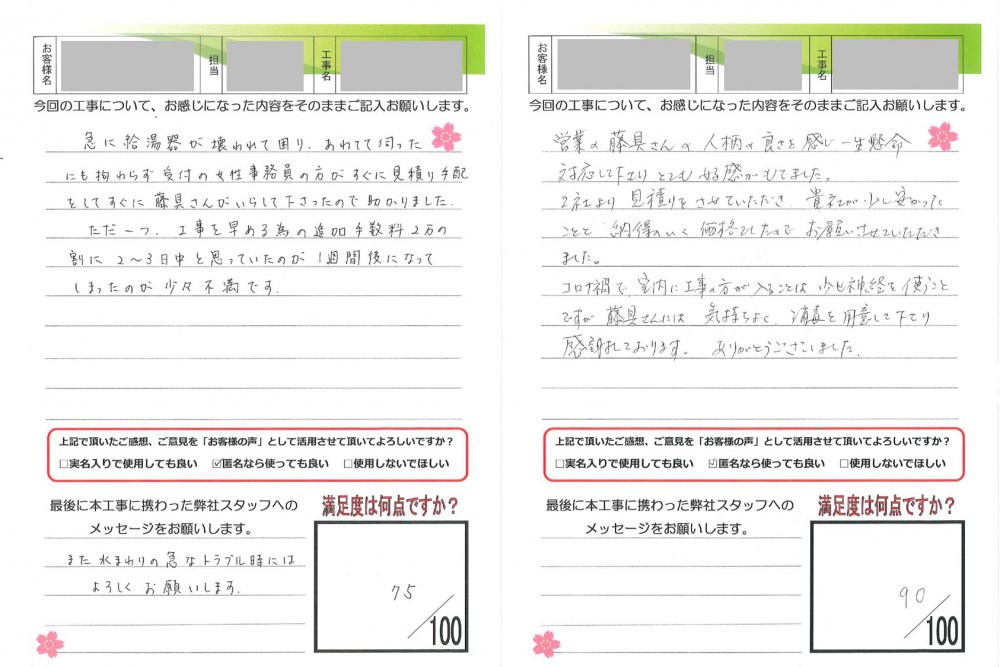 お客様名
担当
工事名
今回の工事について、お感じになった内容をそのままご記入お願いします。
急に給湯器が壊われて困り、あわてて伺った
にも拘わらず受付の女性事務員の方がすぐに見積り手配
をしてすぐに藤具さんがいらして下さったので助かりました。
ただ一つ、工事を早める為の追加手数料2万の
割に2～3日中と思っていたのが1週間後になって
しまったのが少々不満です。
上記で頂いたご感想、ご意見を「お客様の声」として活用させて頂いてよろしいですか？
□実名入りで使用しても良い ☑匿名なら使っても良い □使用しないでほしい
最後に本工事に携わった弊社スタッフへの
メッセージをお願いします。
また水まわりの急なトラブル時には
よろしくお願いします。
満足度は何点ですか？
75
/100
お客様名
担当
工事名
今回の工事について、お感じになった内容をそのままご記入お願いします。
営業の藤具さんの人柄の良さを感じ一生懸命
対応して下さりとても好感がもてました。
2社より見積りをさせていただき、貴社が少し安かった
ことと納得のいく価格でしたのでお願いさせていただき
ました。
コロナ禍で、室内に工事の方が入ることは少し神経を使うこと
ですが藤具さんには気持ちよく、消毒を用意して下さり
感謝しております。ありがとうございました。
上記で頂いたご感想、ご意見を「お客様の声」として活用させて頂いてよろしいですか？
□実名入りで使用しても良い ☑匿名なら使っても良い □使用しないでほしい
最後に本工事に携わった弊社スタッフへの
メッセージをお願いします。
満足度は何点ですか？
90
/100